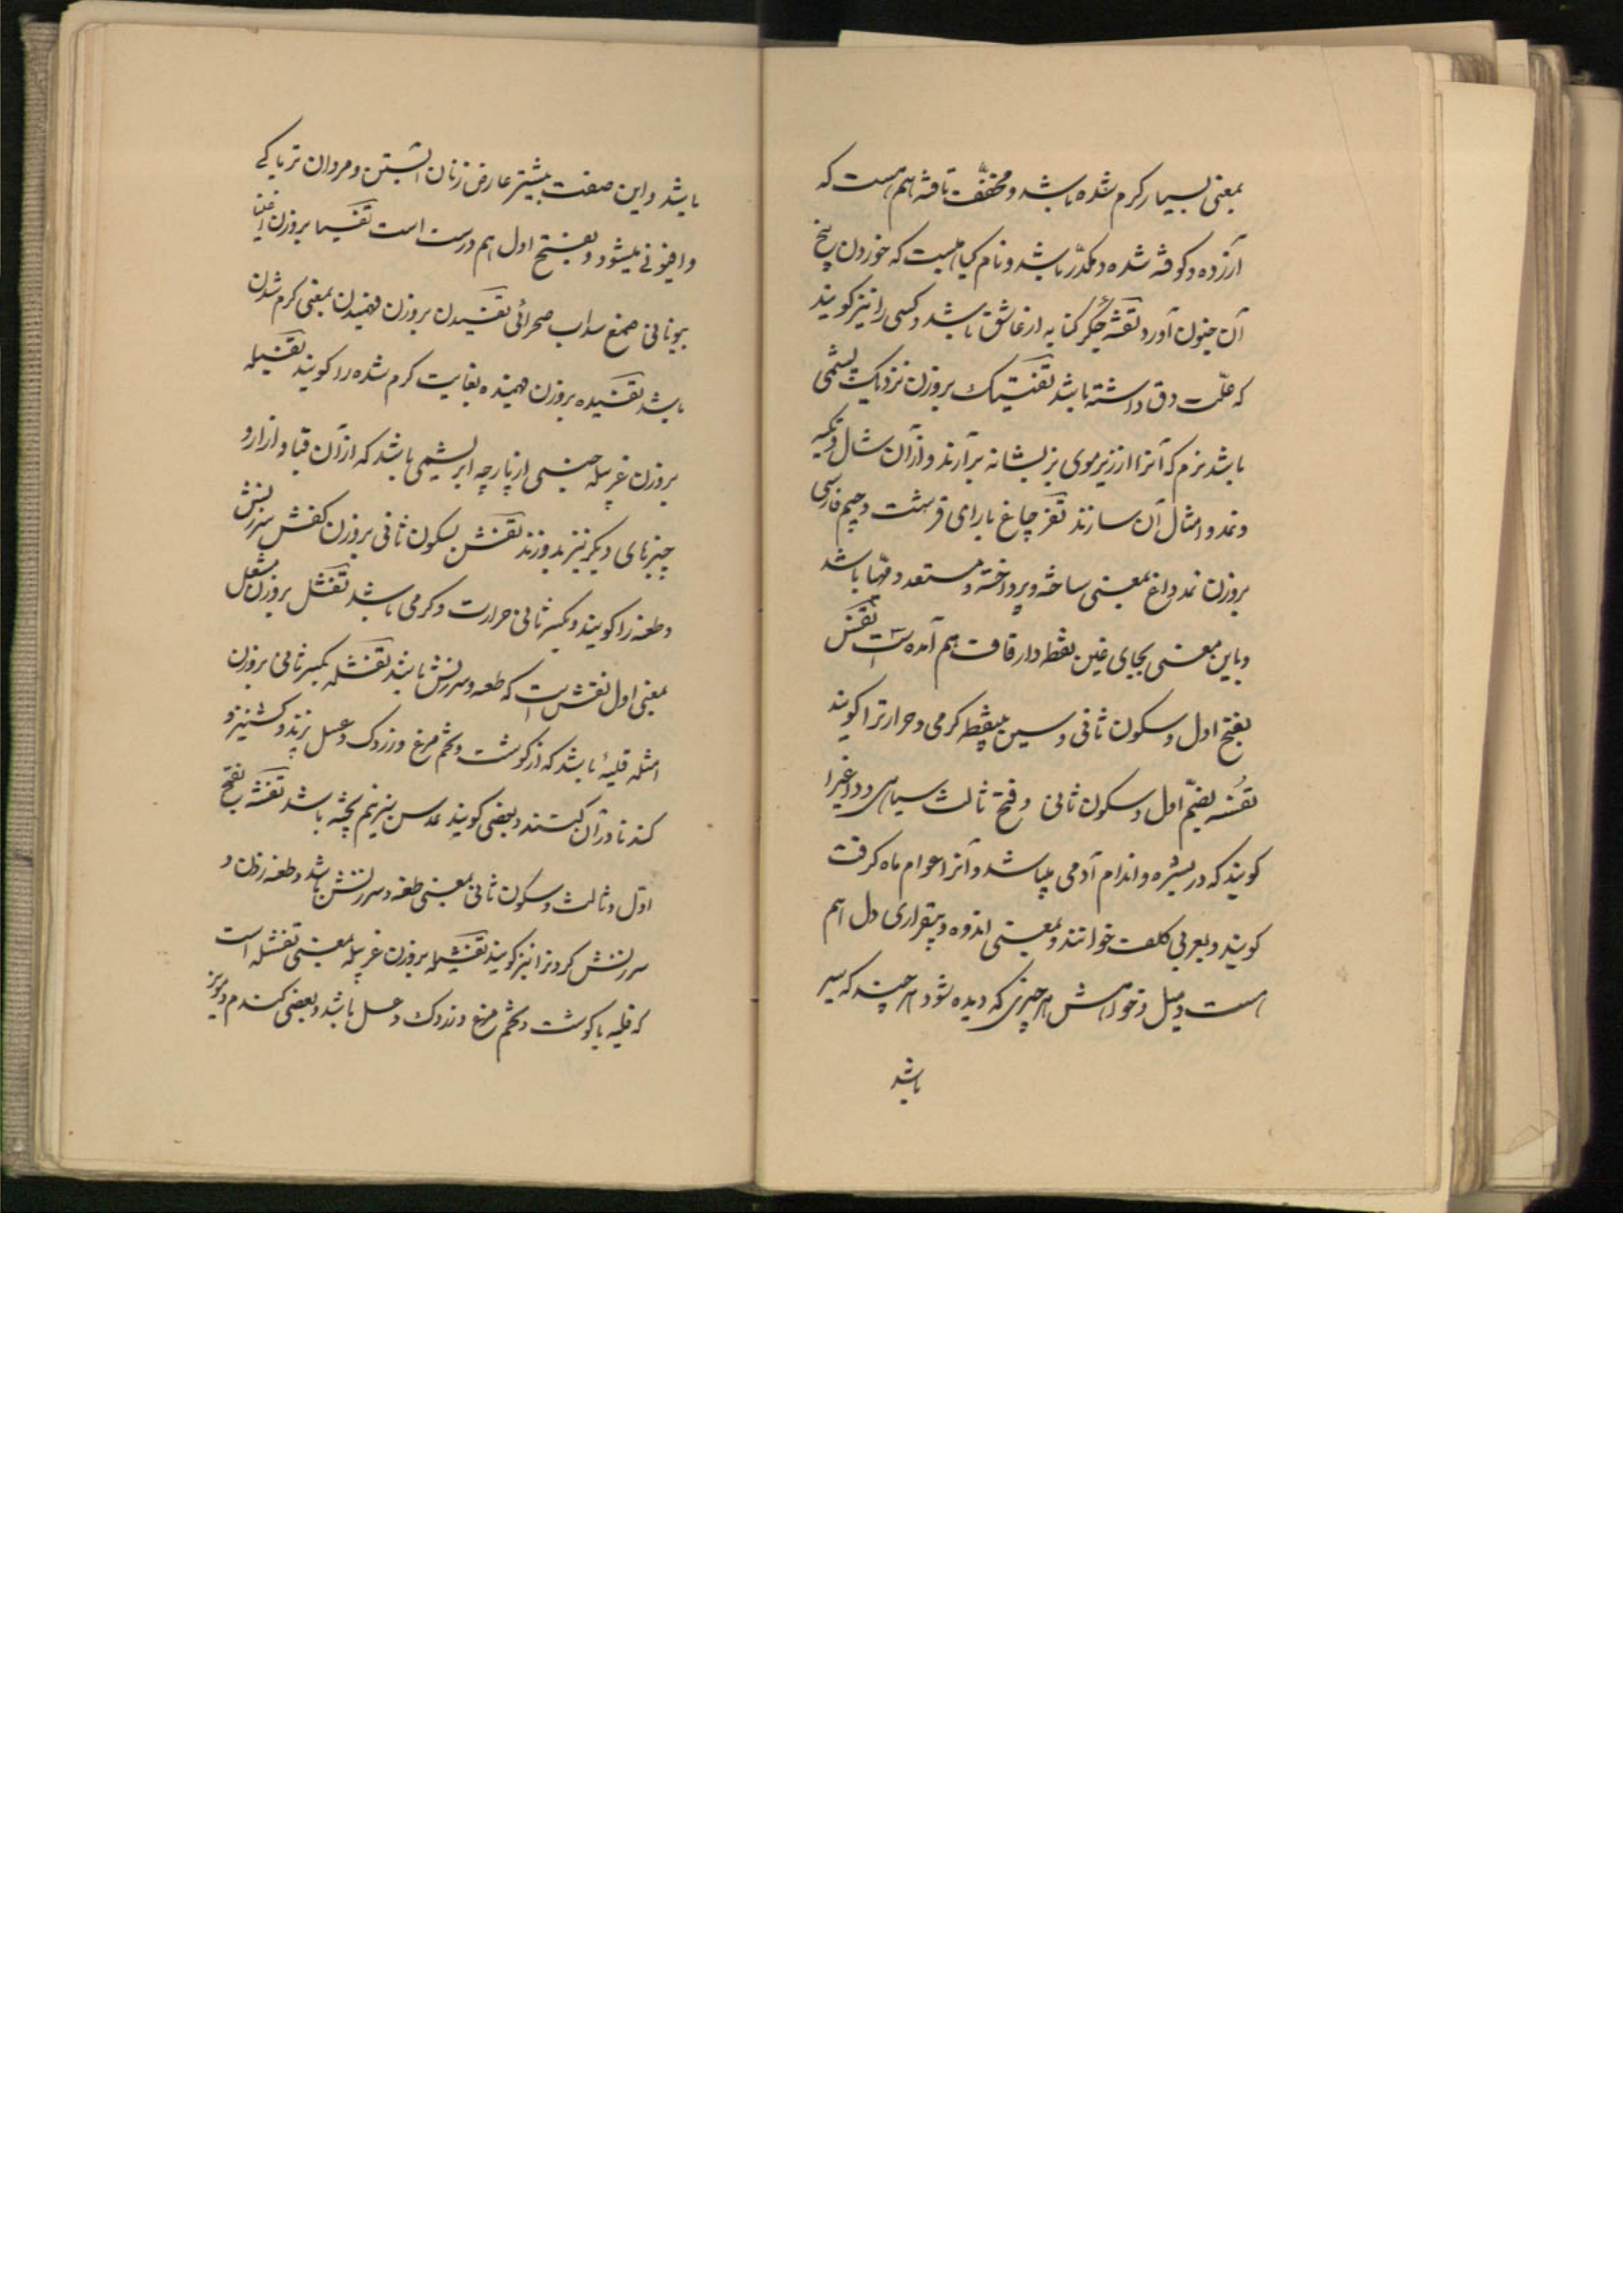 بمعنی بسیار کرم شده باشد و مخفف تافته هم هست که
آزرده و کوفته شده و مکدّر باشد و نام کیاهیست که خوردن بیخ
آن جنون آورد تفته جگر کنایه از عاشق باشد و کسی را نیز کویند
که علّت دق داشته باشد تفتیک بروزن نزدیک پشمی
باشد نرم که آنرا از زیر موی بز بشانه برآرند و از آن شال و تکیه
و نمد و امثال آن سازند تفرچاغ با رای قرشت و جیم فارسی
بروزن نمد داغ بمعنی ساخته و پرداخته و مستعد و مهّیا باشد
و باین معنی بجای غین نقطه دار قاف هم آمده است تفس
بفتح اول و سکون ثانی و سین بینقطه کرمی و حرارترا کویند
تفسه بضمّ اول و سکون ثانی و فتح ثالث سیاهی و داغیرا
کویند که در بشره و اندام آدمی میباشد و آنرا عوام ماه کرفت
کویند و بعربی کلف خوانند و بمعنی اندوه و بیقراری دل هم
هست و میل و خواهش هر چیزی که دیده شود هر چند که سیر
باشد
باشد و این صفت بیشتر عارض زنان آبستن و مردان تریاکی
و افیونی میشود و بفتح اول هم درست است تفسیا بروزن اغنیا
بیونانی صمغ سداب صحرائی تفسیدن بروزن فهمیدن بمعنی کرم شدن
باشد تفسیده بروزن فهمیده بغایت کرم شده را کویند تفسیله
بروزن غربیله جنسی از پارچه ابریشمی باشد که از آن قبا و ازار و
چیزهای دیکر نیز بدوزند تفش بسکون ثانی بروزن کفش سرزنش
و طعنه را کویند و بکسر ثانی حرارت و کرمی باشد تفشل بروزن مشعل
بمعنی اول تفش است که طعنه و سرزنش باشد تفشله بکسر ثانی بروزن
امثله قلیهٔ باشد که از کوشت و تخم مرغ و زردک و عسل پزند و کشنیز و
کندنا در آن کنند و بعضی کویند عدس نیز نیم پخته باشد تفشه بفتح
اوّل و ثالث و سکون ثانی بمعنی طعنه و سرزنش باشد و طعنه زدن و
سرزنش کردنرا نیز کویند تفشیله بروزن غربیله بمعنی تفشله است
که قلیه با کوشت و تخم مرغ و زردک و عسل باشد و بعضی کندم و مویز